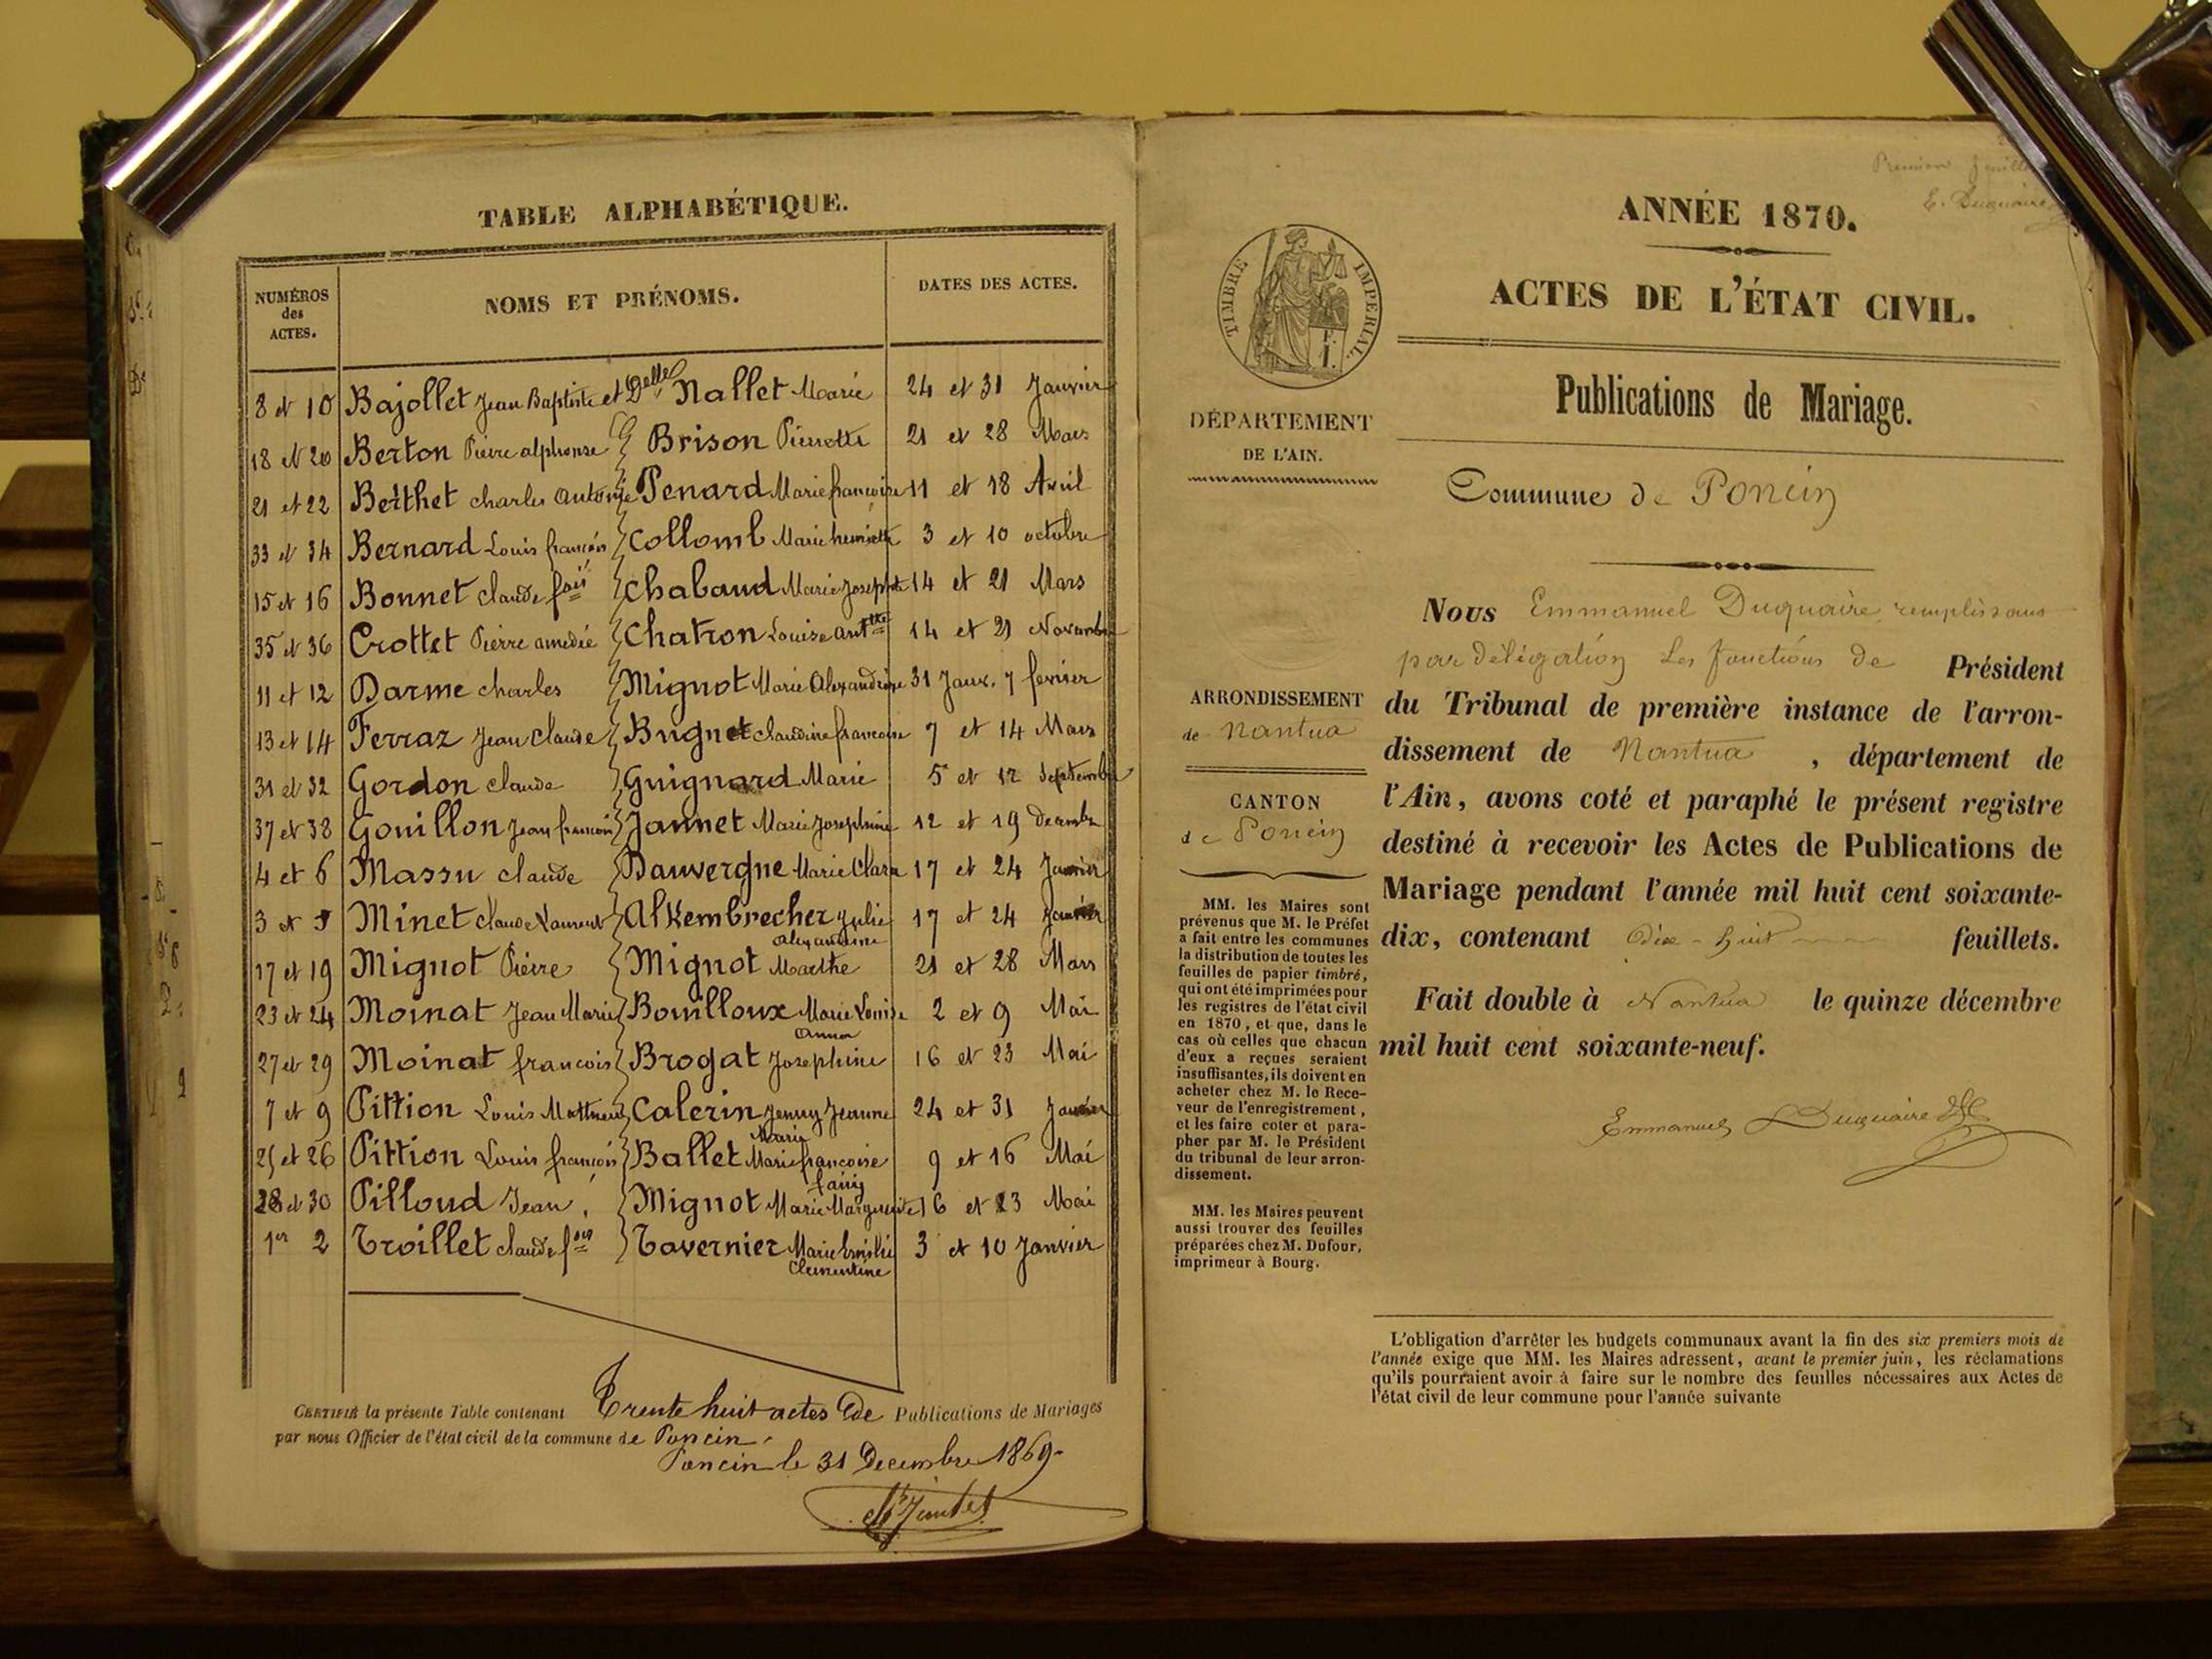 TABLE ALPHABÉTIQUE.
NUMÉROS
des
ACTES.
NOMS ET PRÉNOMS.
DATES DES ACTES.
8 et 10 Bajollet Jean Baptiste et Delle Nallet Marie 24 et 31 Janvier
18 et 20 Berton Pierre alphonse Brison Pierrette 21 et 28 Mars
21 et 22 Berthet charles Antonie Penard Marie francoise 11 et 18 Avril
33 et 34 Bernard Louis françois Collomb Marie henriette 3 et 10 octobre
15 et 16 Bonnet claude fois Chaband Marie Josephte 14 et 21 Mars
35 et 36 Crottet Pierre amedée Chatron Louise Anttte 14 et 21 Novembre
11 et 12 Darme charles Mignot Marie Alexandrine 31 Janv. 7 fevrier
13 et 14 Ferraz Jean Claude Bugnet claudine francoise 7 et 14 Mars
31 et 32 Gordon claude Guignard Marie 5 et 12 Septembre
37 et 38 Gouillon Jean francois Jannet Marie Josephine 12 et 19 Decembre
4 et 6 Massu claude Dauvergne Marie Clara 17 et 24 Janvier
3 et 5 Minet Claude Laurent Alkembrecher Julie 17 et 24 Janvier
alexandrine
17 et 19 Mignot Pierre Mignot Marthe 21 et 28 Mars
23 et 24 Moinat Jean Marie Bouilloux Marie Louise 2 et 9 Mai
Anna
27 et 29 Moinat francois Brogat Josephine 16 et 23 Mai
7 et 9 Pittion Louis Mathieu Calerin Jenny Jeanne 24 et 31 Janvier
Marie
25 et 26 Pittion Louis francois Ballet Marie francoise 9 et 16 Mai
fany
28 et 30 Pilloud Jean Mignot Marie Marguerite 16 et 23 Mai
1er 2 Troillet claude fois Tavernier Marie Emilie 3 et 10 Janvier
Clementine
CERTIFIÉ la présente Table contenant Trente huit actes de Publications de Mariages
par nous Officier de l'état civil de la commune de Poncin.
Poncin le 31 Decembre 1869.
Premier feuillet
E. Duquaire
ANNÉE 1870.
ACTES DE L'ÉTAT CIVIL.
TIMBRE IMPÉRIAL.
Publications de Mariage.
DÉPARTEMENT
DE L'AIN.
Commune de Poncin
Nous Emmanuel Duquaire remplissans
par délégation les fonctions de Président
du Tribunal de première instance de l'arron-
dissement de Nantua , département de
l'Ain, avons coté et paraphé le présent registre
destiné à recevoir les Actes de Publications de
Mariage pendant l'année mil huit cent soixante-
dix, contenant dix-huit feuillets.
Fait double à Nantua le quinze décembre
mil huit cent soixante-neuf.
Emmanuel Duquaire
ARRONDISSEMENT
de Nantua
CANTON
de Poncin
MM. les Maires sont
prévenus que M. le Préfet
a fait entre les communes
la distribution de toutes les
feuilles de papier timbré,
qui ont été imprimées pour
les registres de l'état civil
en 1870, et que, dans le
cas où celles que chacun
d'eux a reçues seraient
insuffisantes, ils doivent en
acheter chez M. le Rece-
veur de l'enregistrement,
et les faire coter et para-
pher par M. le Président
du tribunal de leur arron-
dissement.
MM. les Maires peuvent
aussi trouver des feuilles
préparées chez M. Dufour,
imprimeur à Bourg.
L'obligation d'arrêter les budgets communaux avant la fin des six premiers mois de
l'année exige que MM. les Maires adressent, avant le premier juin, les réclamations
qu'ils pourraient avoir à faire sur le nombre des feuilles nécessaires aux Actes de
l'état civil de leur commune pour l'année suivante